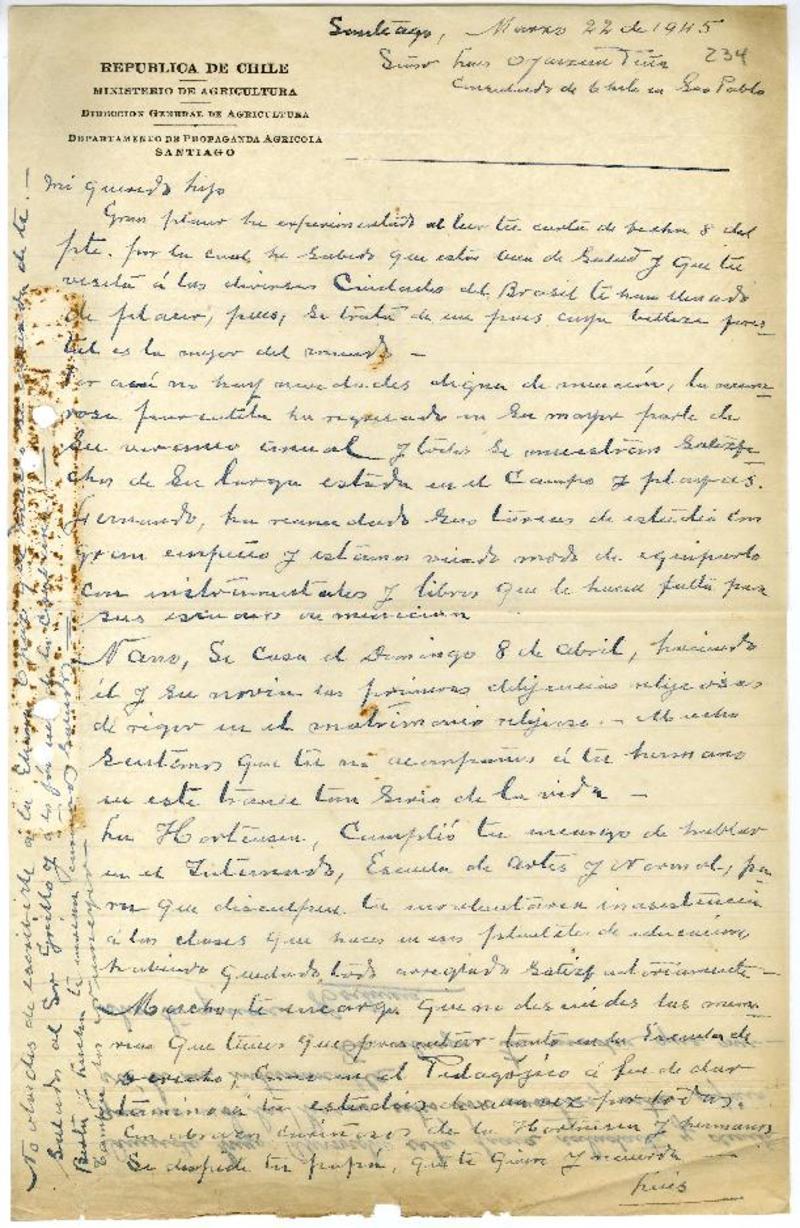 Santiago, Marzo 22 de 1945
234
Señor Luis Oyarzún Peña
Consulado de Chile en Sao Pablo
REPUBLICA DE CHILE
MINISTERIO DE AGRICULTURA
DIRECCION GENERAL DE AGRICULTURA
DEPARTAMENTO DE PROPAGANDA AGRICOLA
SANTIAGO
Mi querido hijo
Gran placer he experimentado al leer tu carta de fecha 8 del
pte. por la cual, he sabido que estás bien de salud y que tu
visita á las diversas Ciudades del Brasil te han llenado
de placer, pues, se trata de un pais cuya belleza
es la mejor del mundo —
Por acá no hay novedades digna de mención, la nume-
rosa parentela ha regresado en su mayor parte de
su veraneo anual y todos se muestran satisfe-
chos de su larga estada en el Campo y playas.
Fernando, ha reanudado sus tareas de estudio con
gran empeño y estamos viendo modo de equiparlo
con instrumentales y libros que le hacen falta para
sus estudios de
Nano, se casa el Domingo 8 de abril, haciendo
él y su novia las primeras diligencias religiosas
de rigor en el matrimonio religioso. — Mucho
sentimos que tu no acompañes á tu hermano
en este trance tan serio de la vida —
La Hortensia, Cumplió tu encargo de hablar
en el Internado, Escuela de Artes y Normal, pa-
ra que disculpen tu involuntaria inasistencia
á las clases que haces en esos planteles de educación,
habiendo quedado todo arreglado satisfactoriamente —
Mucho, te encargo que no descuides las memo-
rias que tienes que presentar tanto en la Escuela de
Derecho, Como en el Pedagógico á fin de dar
término á tu estudios de una vez por todas.
Con abrazos cariñosos de la Hortensia y hermanos
se despide tu papá, que te quiere y recuerda —
Luis
No olvides de escribirle a la Elena
de ti. —
Saludos al Sor Grillo y
Berta y te envian saludos
tambien los